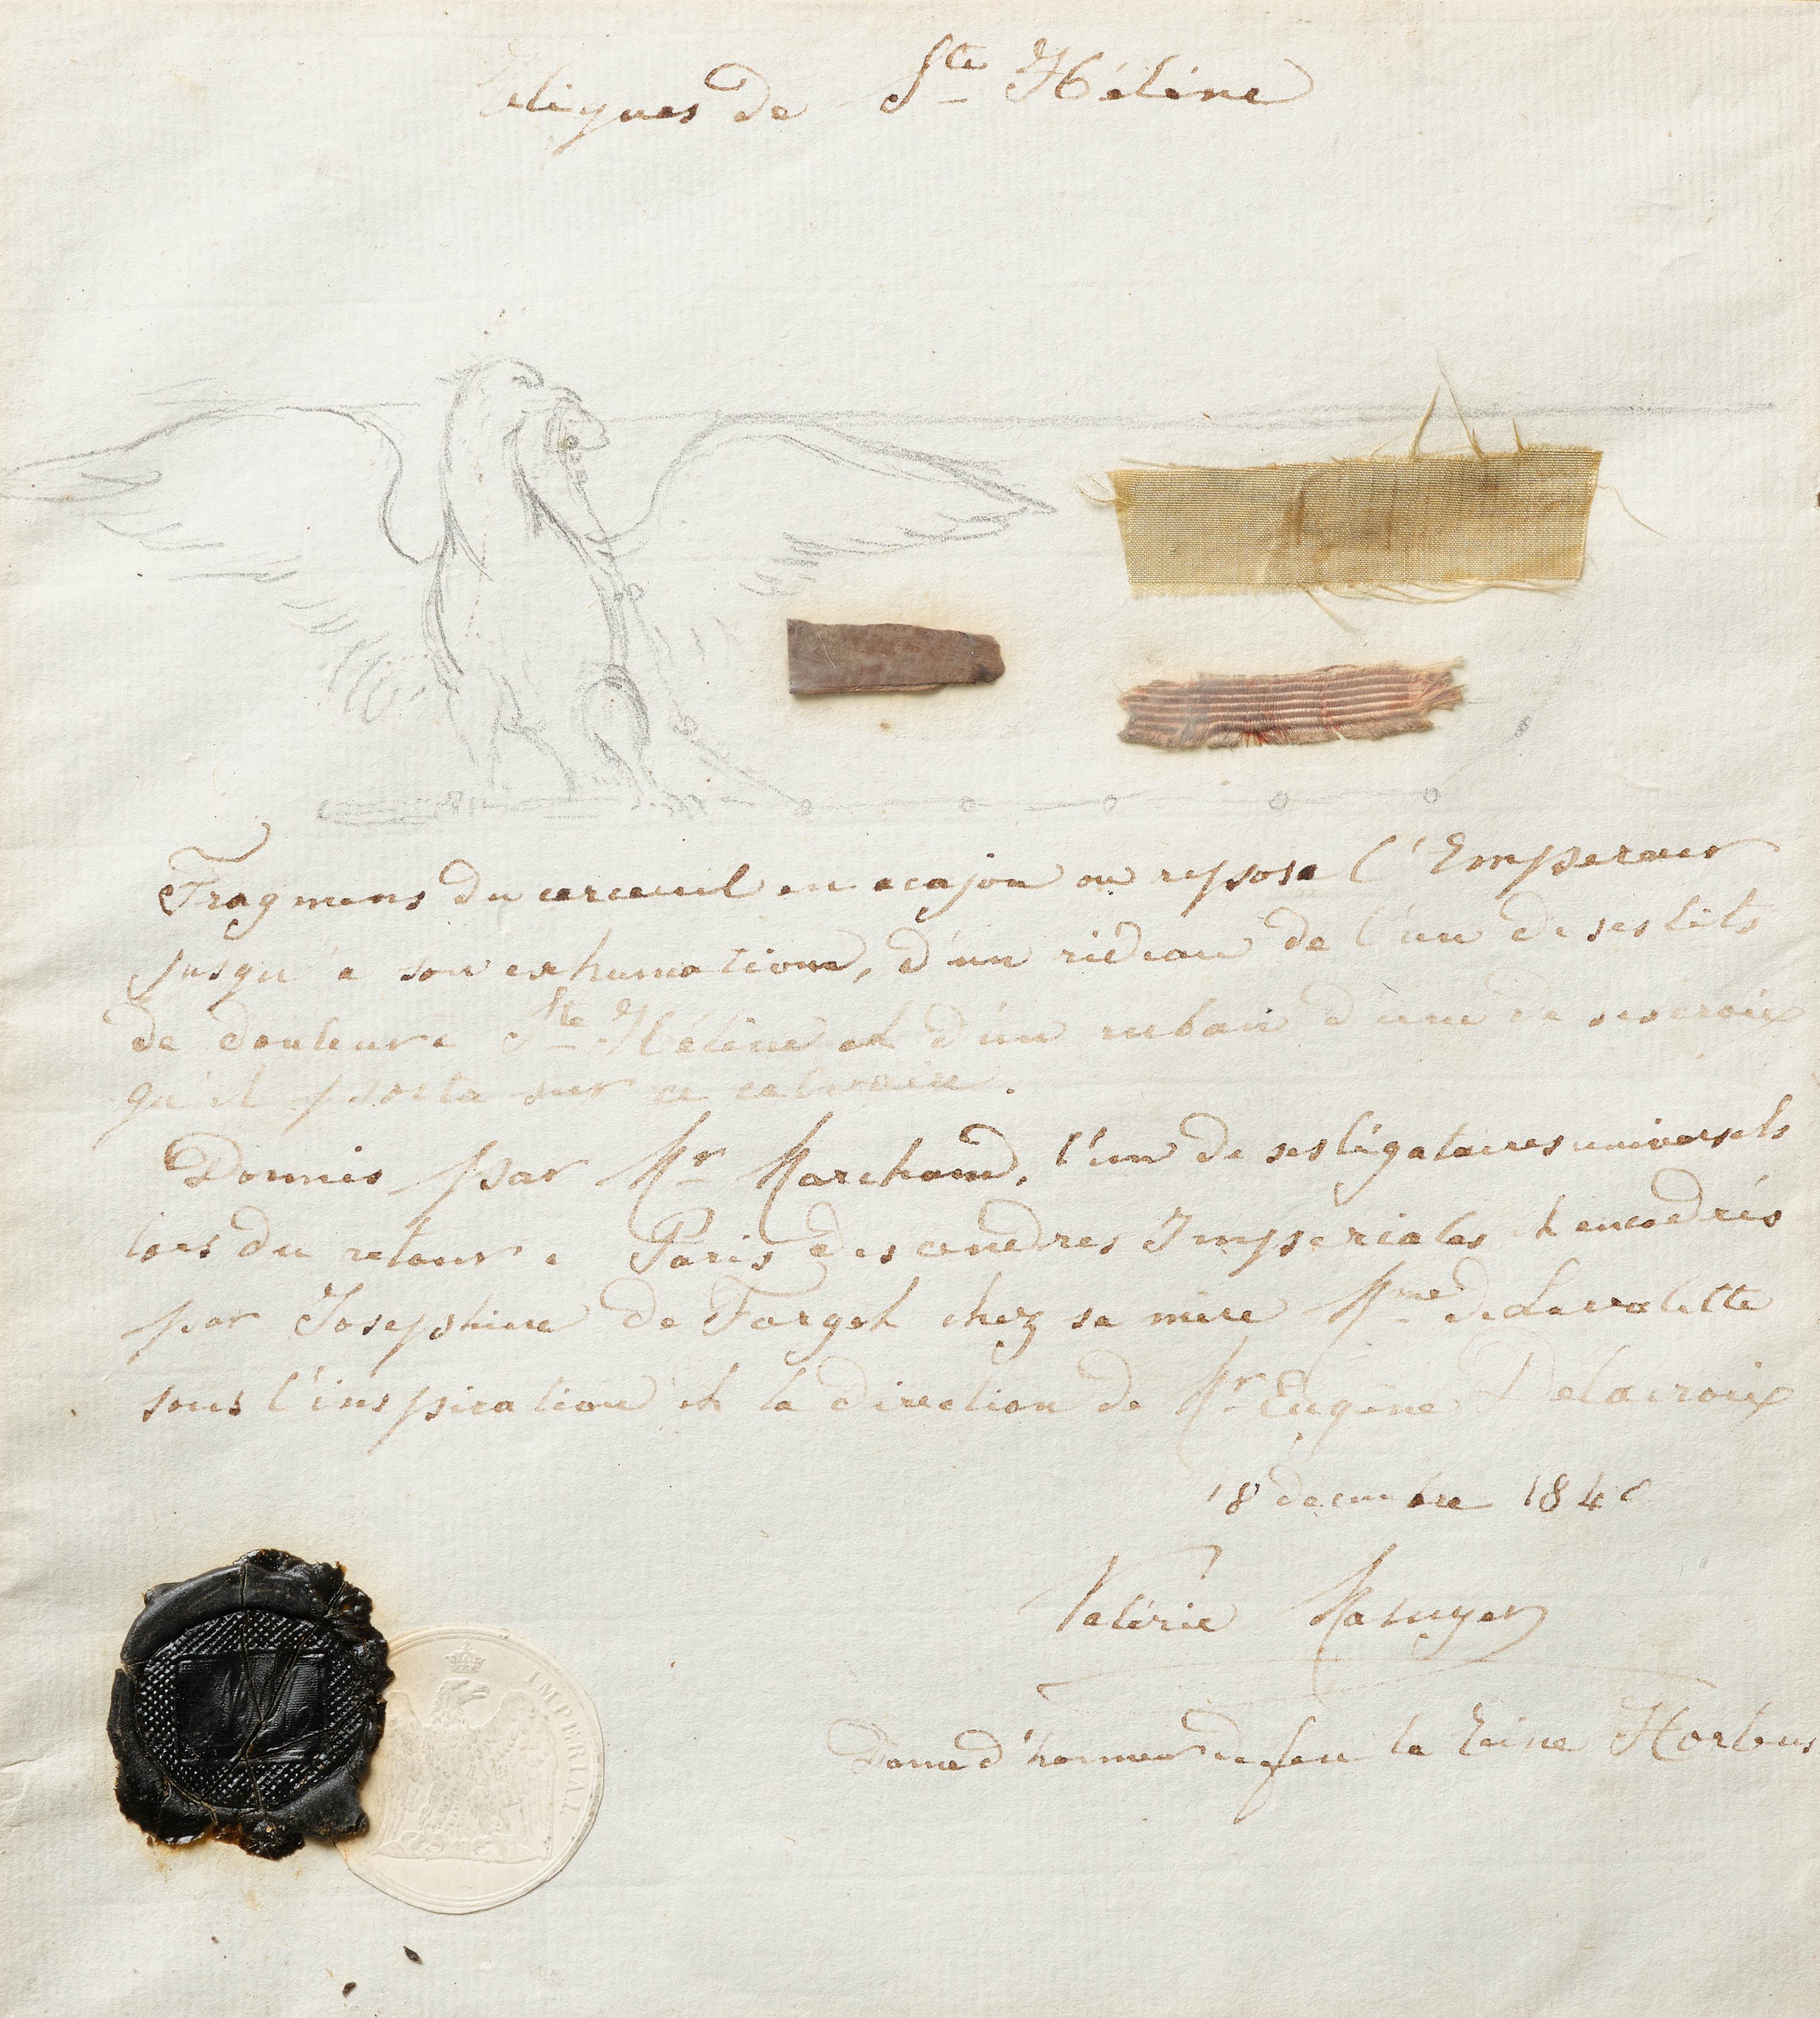 Reliques de Ste Hélène
Fragmens du cercueil en acajou ou reposa l'Empereur
jusqu'à son exhumation, d'un rideau de l'un de ses lits
de douleur a Ste Hélène et d'un ruban d'une de ses croix
qu'il porta sur ce calvaire.
Donnés par Mr Marchand, l'un de ses légataires universels
lors du retour a Paris des cendres Impériales et encadrés
par Josephine de Forget chez sa mère Mme de Lavalette
sous l'inspiration et la direction de Mr Eugène Delacroix
18 decembre 184
Valérie Masuyer
Dame d'honneur de feu la Reine Hortense
IMPERIAL